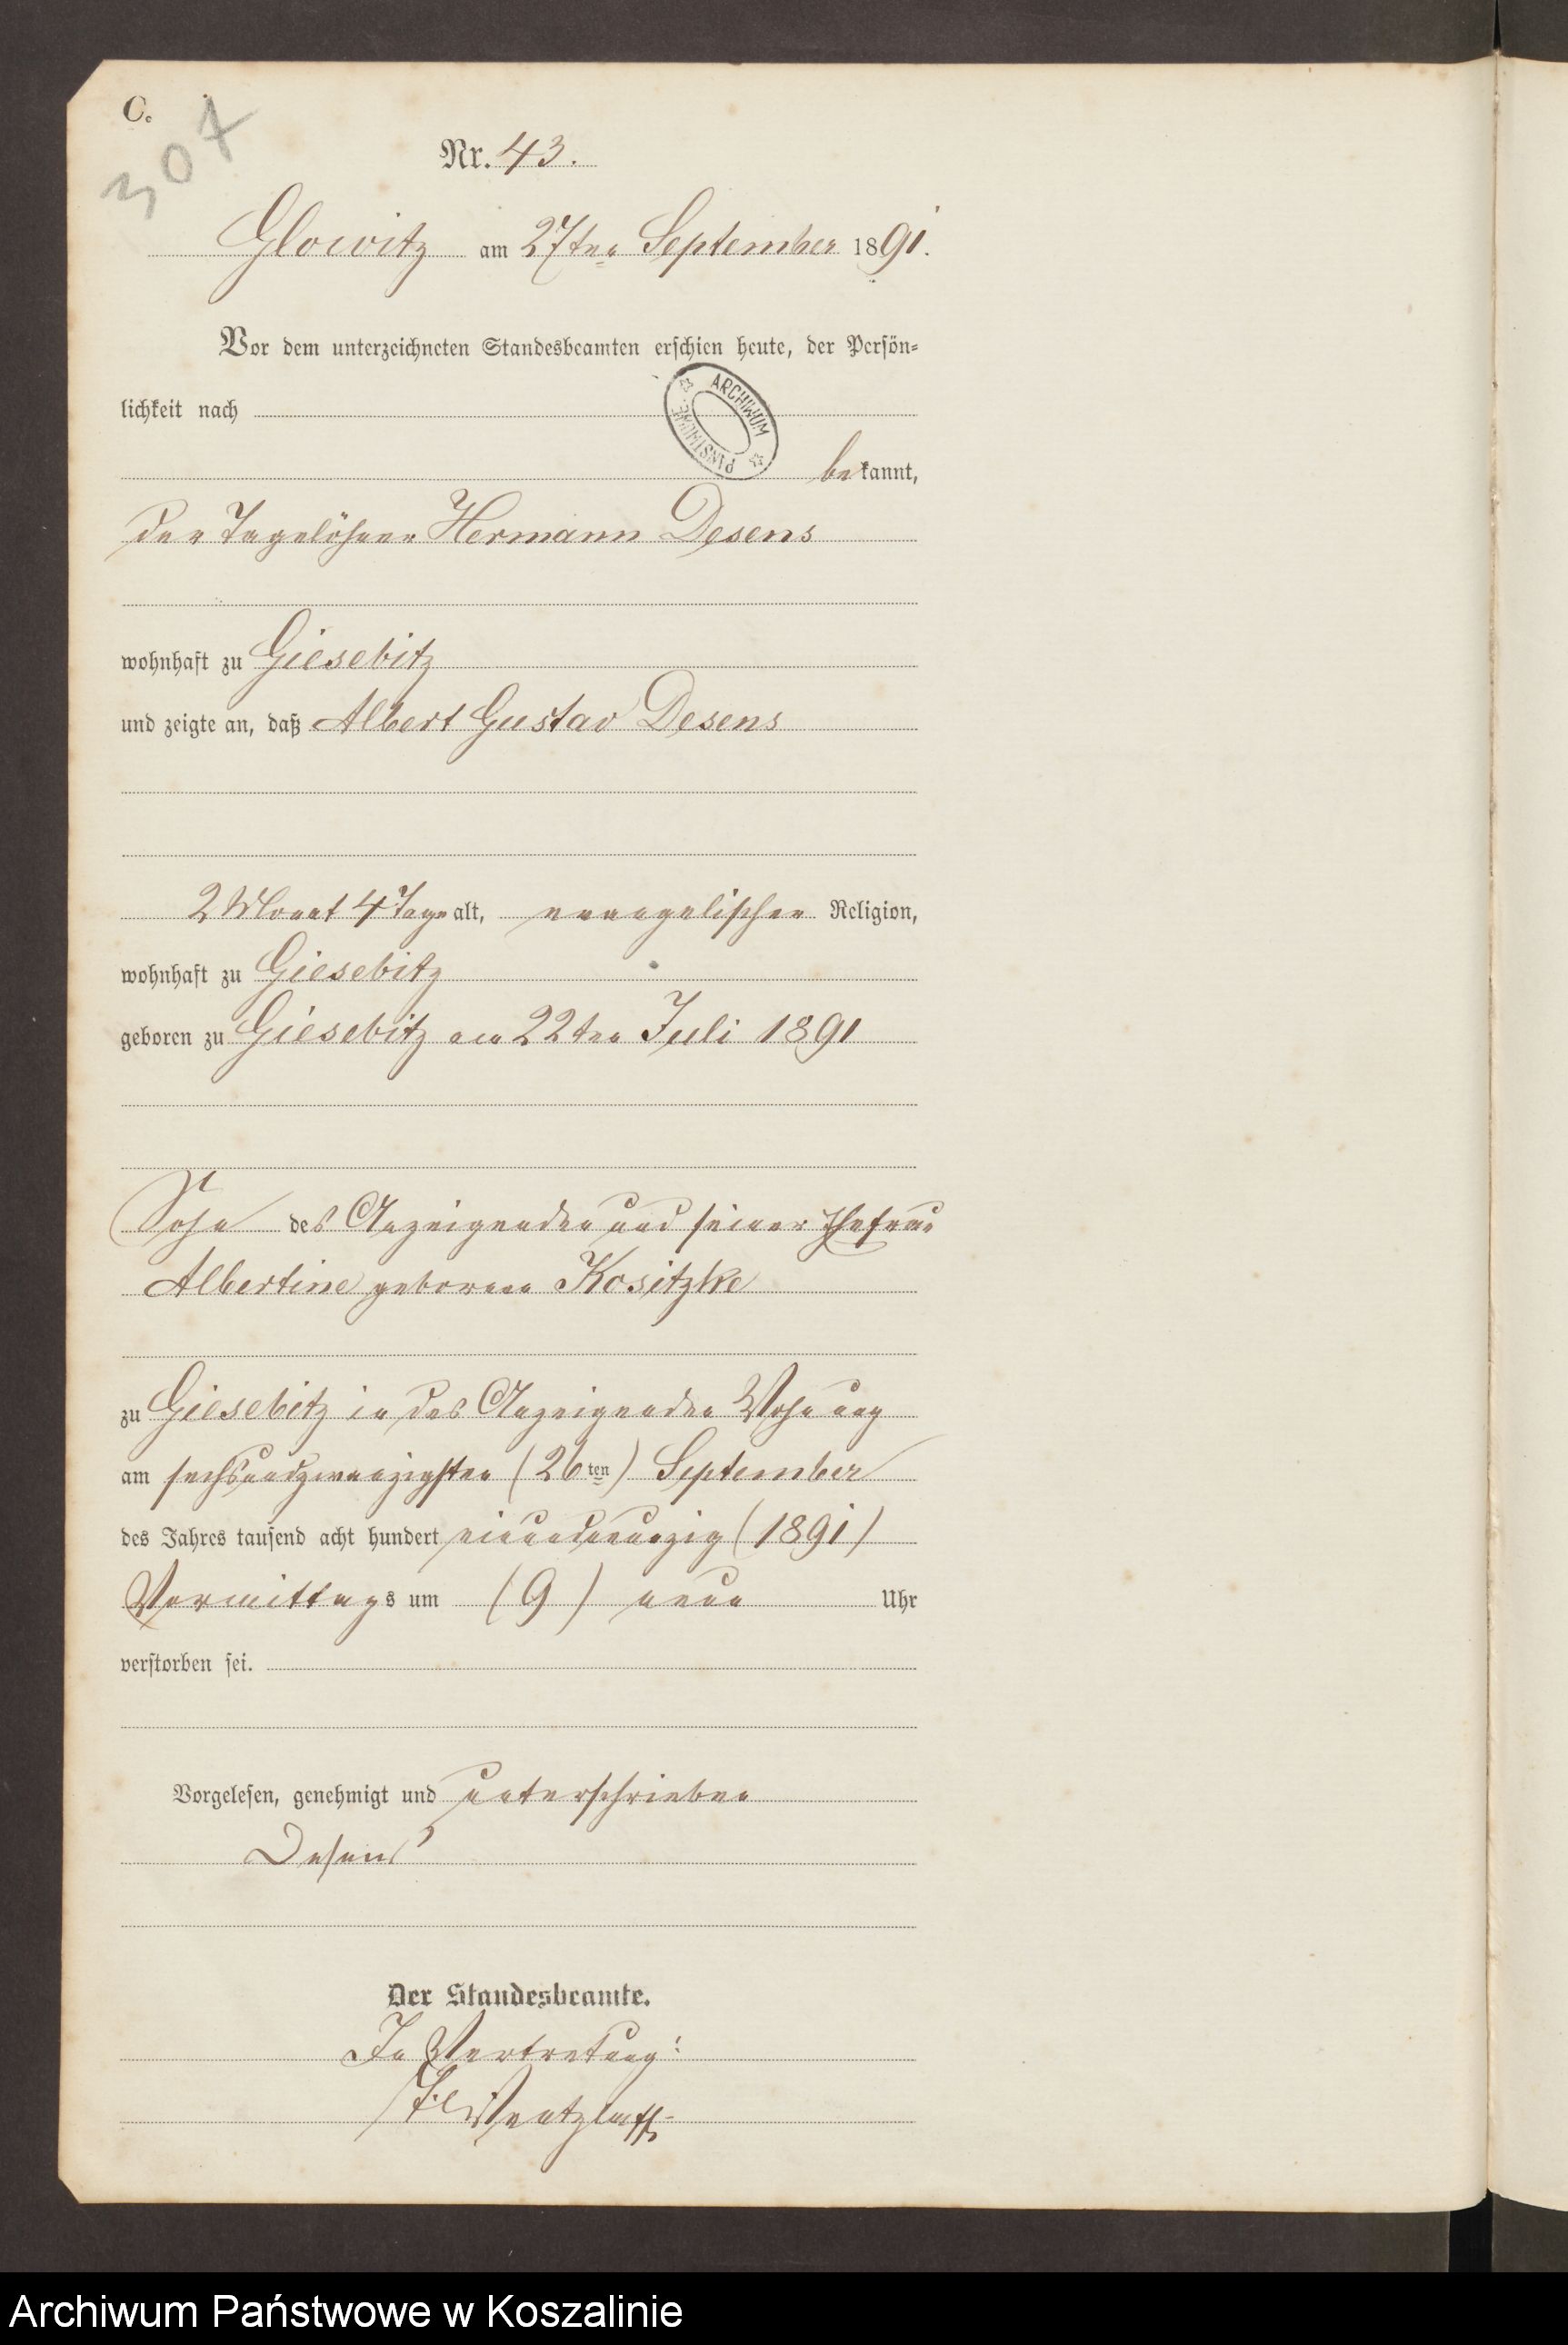 C.
307
Nr. 43.
Glowitz am 27ten September 1891.
Vor dem unterzeichneten Standesbeamten erschien heute, der Persön-
lichkeit nach
ARCHIWUM PAŃSTWOWE
bekannt,
der Tagelöhner Hermann Desens
wohnhaft zu Giesebitz
und zeigte an, daß Albert Gustav Desens
2 Monat 4 Tage alt, evangelischer Religion,
wohnhaft zu Giesebitz
geboren zu Giesebitz am 22ten Juli 1891
Sohn des Anzeigenden und seiner Ehefrau
Albertine geborene Kositzke
zu Giesebitz in des Anzeigenden Wohnung
am sechsundzwanzigsten (26ten) September
des Jahres tausend acht hundert einundneunzig (1891)
Vormittags um (9) neun Uhr
verstorben sei.
Vorgelesen, genehmigt und unterschrieben
Desens
Der Standesbeamte.
In Vertretung:
Wentzlaff
Archiwum Państwowe w Koszalinie